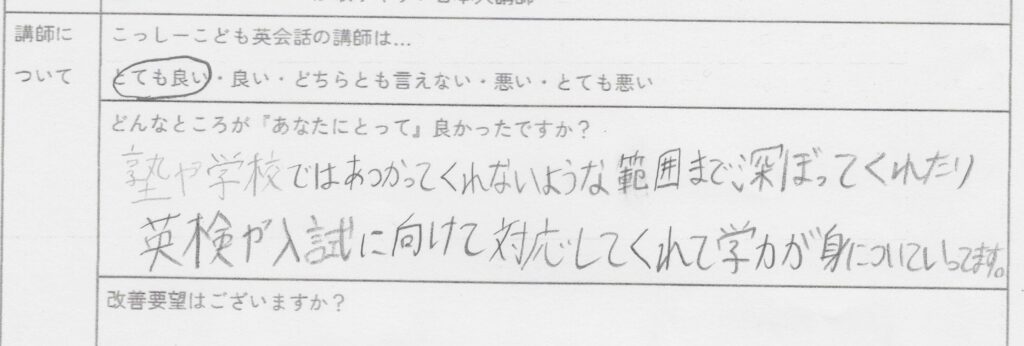 講師に
ついて
こっしーこども英会話の講師は…
とても良い・良い・どちらとも言えない・悪い・とても悪い
どんなところが『あなたにとって』良かったですか？
塾や学校ではあつかってくれないような範囲まで深ぼってくれたり
英検や入試に向けて対応してくれて学力が身についていってます。
改善要望はございますか？